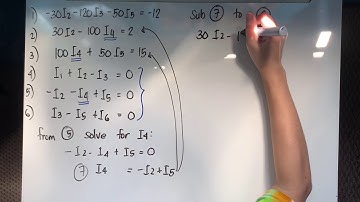 1) -30I2-120I3-50I5=-12
2) 30I2-100I4=2
3) 100I4+50I5=15
4) I1+I2-I3=0
5) -I2-I4+I5=0
6) I3-I5+I6=0
from ⑤ solve for I4:
-I2-I4+I5=0
⑦ I4 =-I2+I5
Sub ⑦ to
30I2-